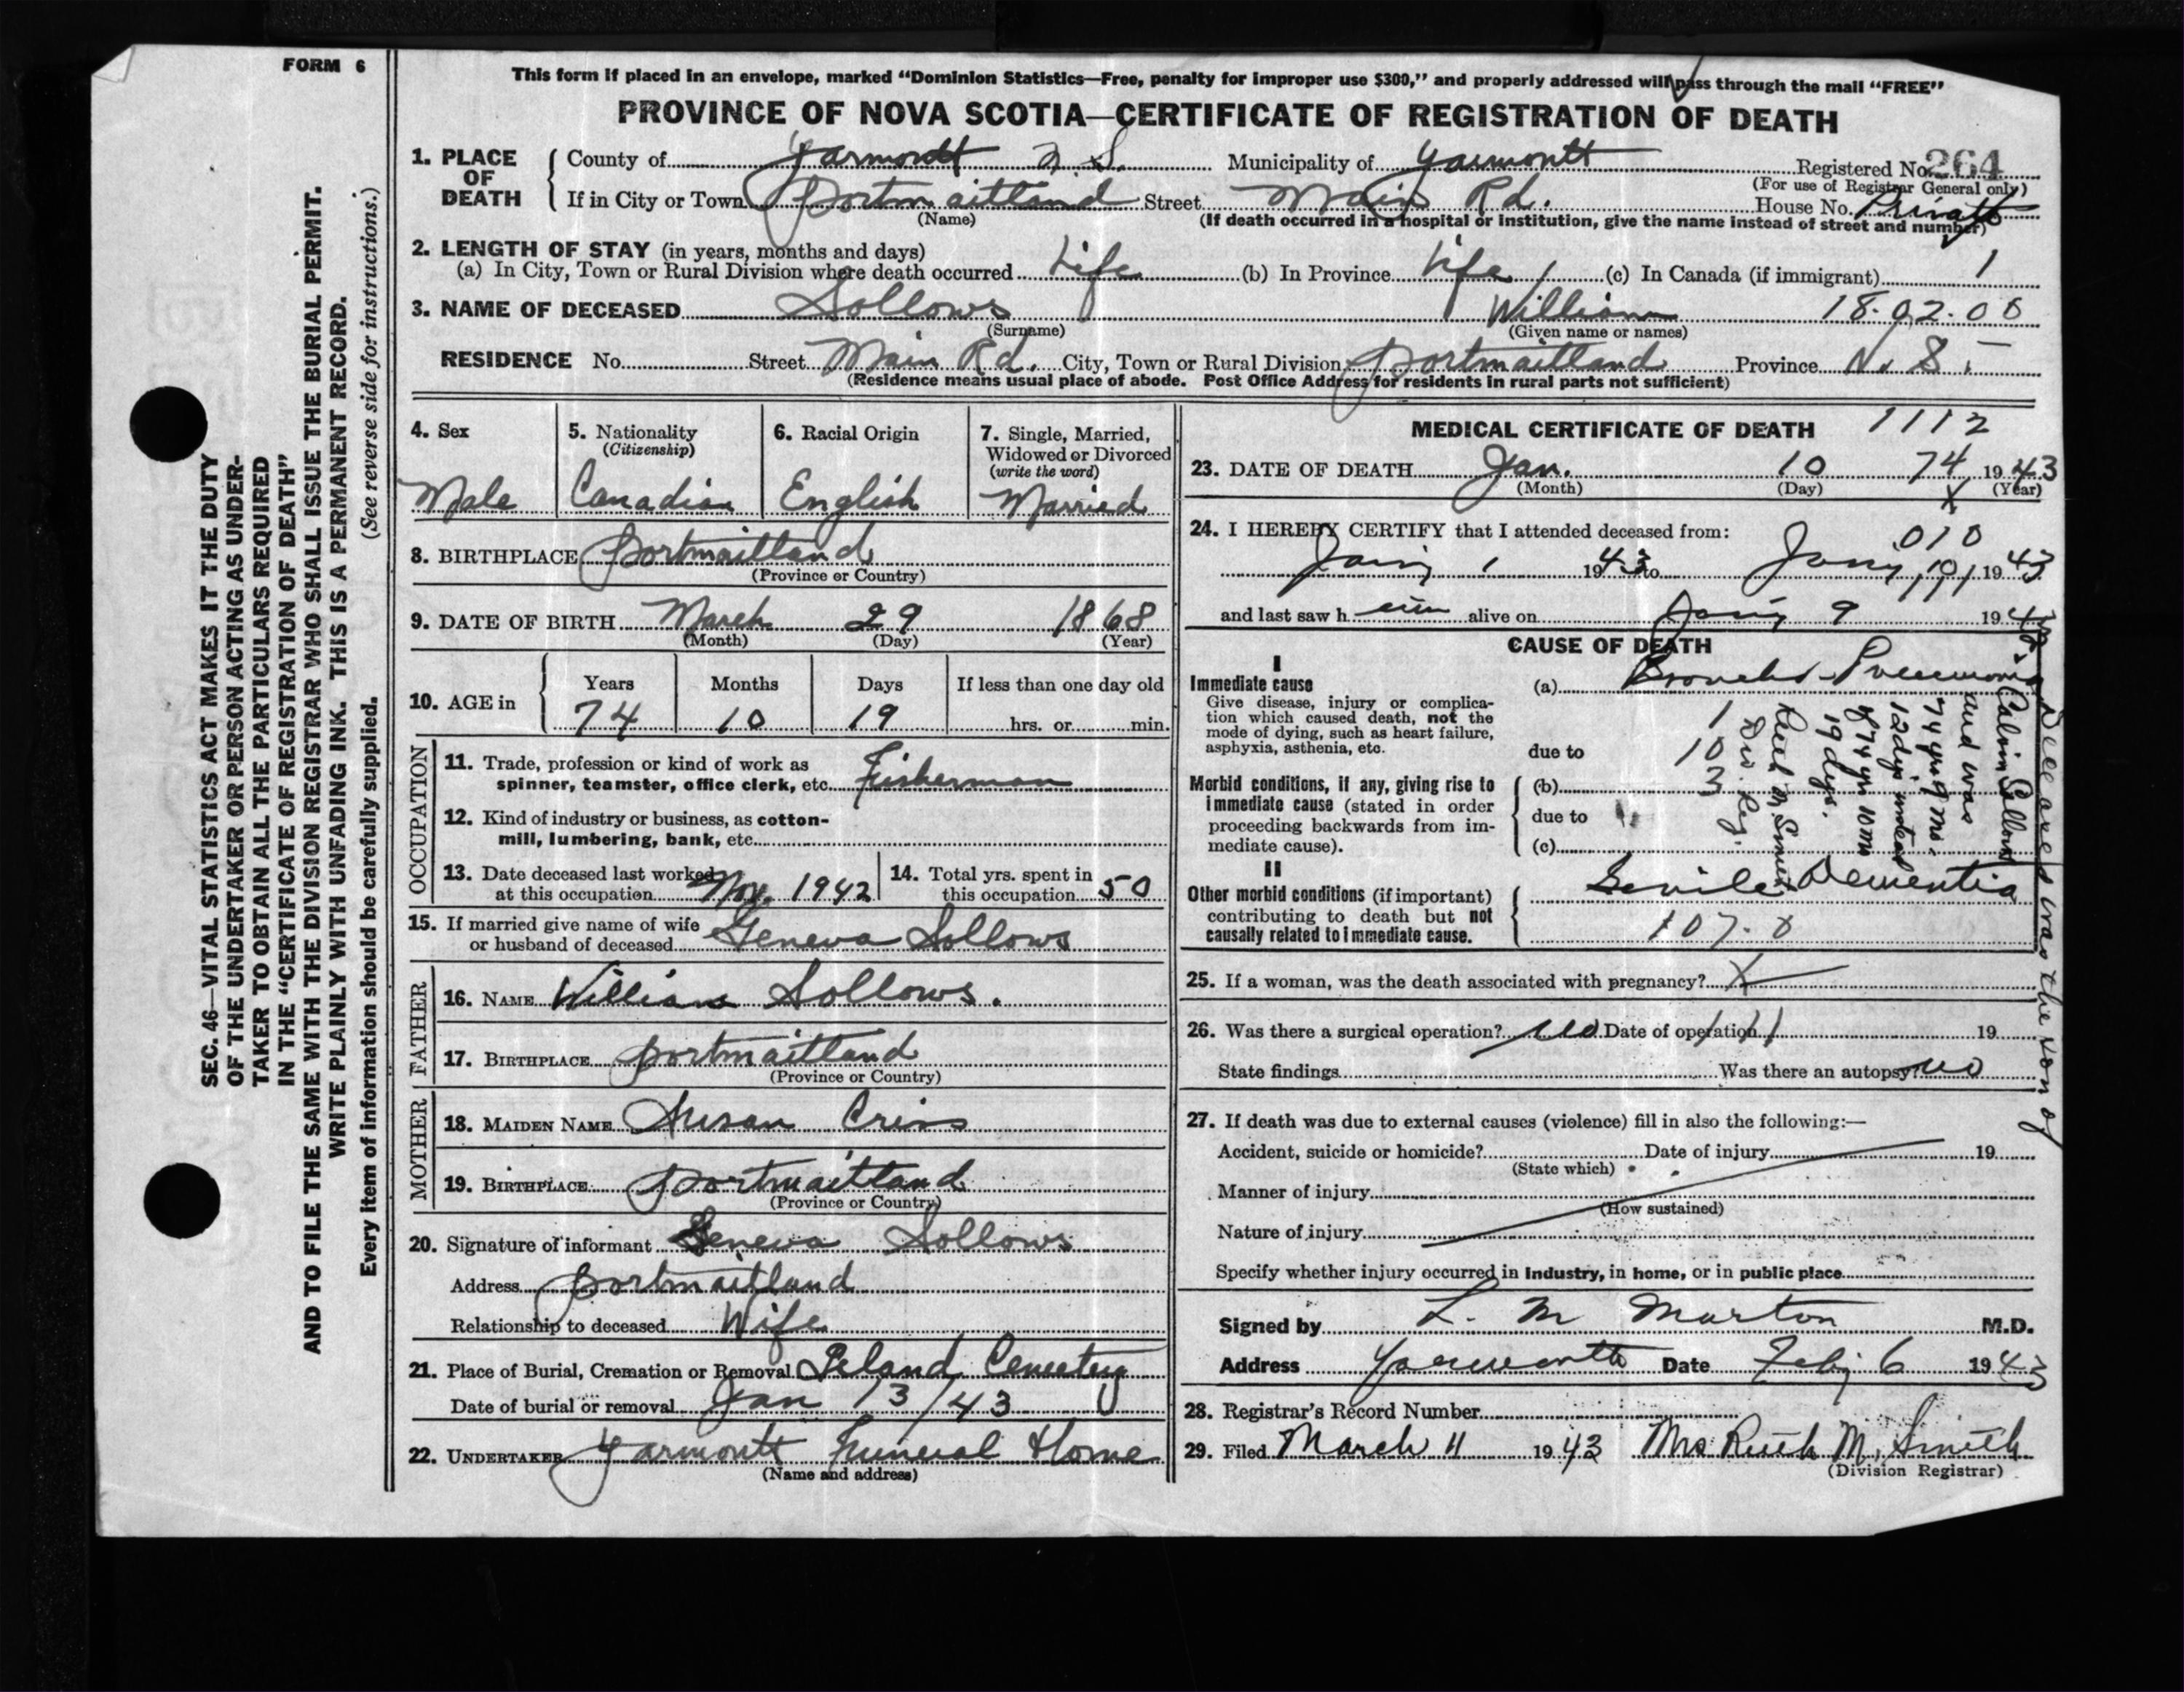 FORM 6
This form if placed in an envelope, marked “Dominion Statistics—Free, penalty for improper use $300,” and properly addressed will pass through the mail “FREE”
PROVINCE OF NOVA SCOTIA—CERTIFICATE OF REGISTRATION OF DEATH
1. PLACE OF DEATH County of Yarmouth N.S. Municipality of Yarmouth Registered No. 264
(For use of Registrar General only)
If in City or Town Portmaitland Street Main Rd. House No. Private
(Name) (If death occurred in a hospital or institution, give the name instead of street and number)
2. LENGTH OF STAY (in years, months and days)
(a) In City, Town or Rural Division where death occurred Life (b) In Province Life (c) In Canada (if immigrant) 1
3. NAME OF DECEASED Sollows William 18.02.00
(Surname) (Given name or names)
RESIDENCE No. Street Main Rd. City, Town or Rural Division Portmaitland Province N.S.
(Residence means usual place of abode. Post Office Address for residents in rural parts not sufficient)
4. Sex Male
5. Nationality (Citizenship) Canadian
6. Racial Origin English
7. Single, Married, Widowed or Divorced (write the word) Married
8. BIRTHPLACE Portmaitland
(Province or Country)
9. DATE OF BIRTH March 29 1868
(Month) (Day) (Year)
10. AGE in Years Months Days If less than one day old
74 10 19 hrs. or min.
OCCUPATION
11. Trade, profession or kind of work as
spinner, teamster, office clerk, etc. Fisherman
12. Kind of industry or business, as cotton-
mill, lumbering, bank, etc.
13. Date deceased last worked
at this occupation Nov. 1942
14. Total yrs. spent in
this occupation 50
15. If married give name of wife
or husband of deceased Geneva Sollows
FATHER
16. NAME William Sollows.
17. BIRTHPLACE Portmaitland
(Province or Country)
MOTHER
18. MAIDEN NAME Susan
19. BIRTHPLACE Portmaitland
(Province or Country)
20. Signature of informant Geneva Sollows
Address Portmaitland
Relationship to deceased Wife
21. Place of Burial, Cremation or Removal Island Cemetery
Date of burial or removal Jan 13/43
22. UNDERTAKER Yarmouth Funeral Home
(Name and address)
MEDICAL CERTIFICATE OF DEATH 1112
23. DATE OF DEATH Jan. 10 74 1943
(Month) (Day) (Year)
X
24. I HEREBY CERTIFY that I attended deceased from:
010
Jany 1 1943 to Jany 10 1943
and last saw him alive on Jany 9 1943
CAUSE OF DEATH
I
Immediate cause
Give disease, injury or complica-
tion which caused death, not the
mode of dying, such as heart failure,
asphyxia, asthenia, etc.
(a) Broncho-Pneumonia
due to
Morbid conditions, if any, giving rise to
immediate cause (stated in order
proceeding backwards from im-
mediate cause).
(b)
due to
(c)
1
10
3
II
Other morbid conditions (if important)
contributing to death but not
causally related to immediate cause.
Senile Dementia
107.0
Deceased was the son of
Calvin Sollows
and was
74 yrs 9 mo.
12 dys instead
of 74 yr 10 mo
19 dys.
Ruth M. Smith
Div. Reg.
25. If a woman, was the death associated with pregnancy? X
26. Was there a surgical operation? no Date of operation 19
State findings Was there an autopsy? no
27. If death was due to external causes (violence) fill in also the following:—
Accident, suicide or homicide? Date of injury 19
(State which)
Manner of injury
(How sustained)
Nature of injury
Specify whether injury occurred in industry, in home, or in public place
Signed by L. M Morton M.D.
Address Yarmouth Date Feby 6 1943
28. Registrar’s Record Number
29. Filed March 11 1943 Mrs Ruth M. Smith
(Division Registrar)
SEC. 46—VITAL STATISTICS ACT MAKES IT THE DUTY
OF THE UNDERTAKER OR PERSON ACTING AS UNDER-
TAKER TO OBTAIN ALL THE PARTICULARS REQUIRED
IN THE “CERTIFICATE OF REGISTRATION OF DEATH”
AND TO FILE THE SAME WITH THE DIVISION REGISTRAR WHO SHALL ISSUE THE BURIAL PERMIT.
WRITE PLAINLY WITH UNFADING INK. THIS IS A PERMANENT RECORD.
Every item of information should be carefully supplied. (See reverse side for instructions.)